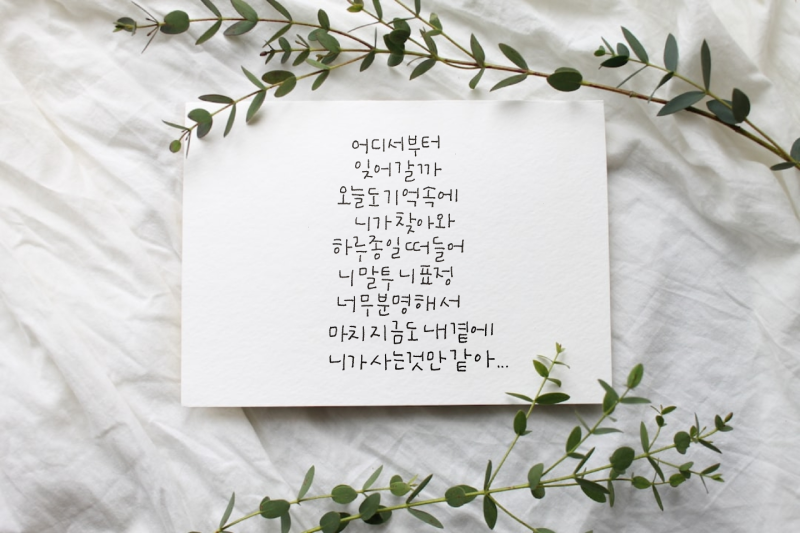 어디서부터
잊어갈까
오늘도기억속에
니가찾아와
하루종일떠들어
니말투니표정
너무분명해서
마치지금도내곁에
니가사는것만같아...